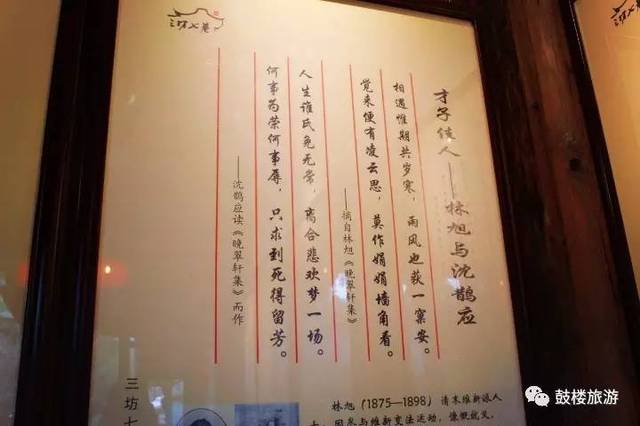 三坊七巷
才子佳人——林旭与沈鹊应
相遇惟期共岁寒，雨风也获一窠安。
觉来便有凌云思，莫作娟娟墙角看。
——摘自林旭《晚翠轩集》
人生谁氏免无常，离合悲欢梦一场。
何事为荣何事辱，只求到死得留芳。
——沈鹊应读《晚翠轩集》而作
三坊七
林旭（1875—1898） 清末维新派人
因参与维新变法运动，慷慨就义。
鼓楼旅游